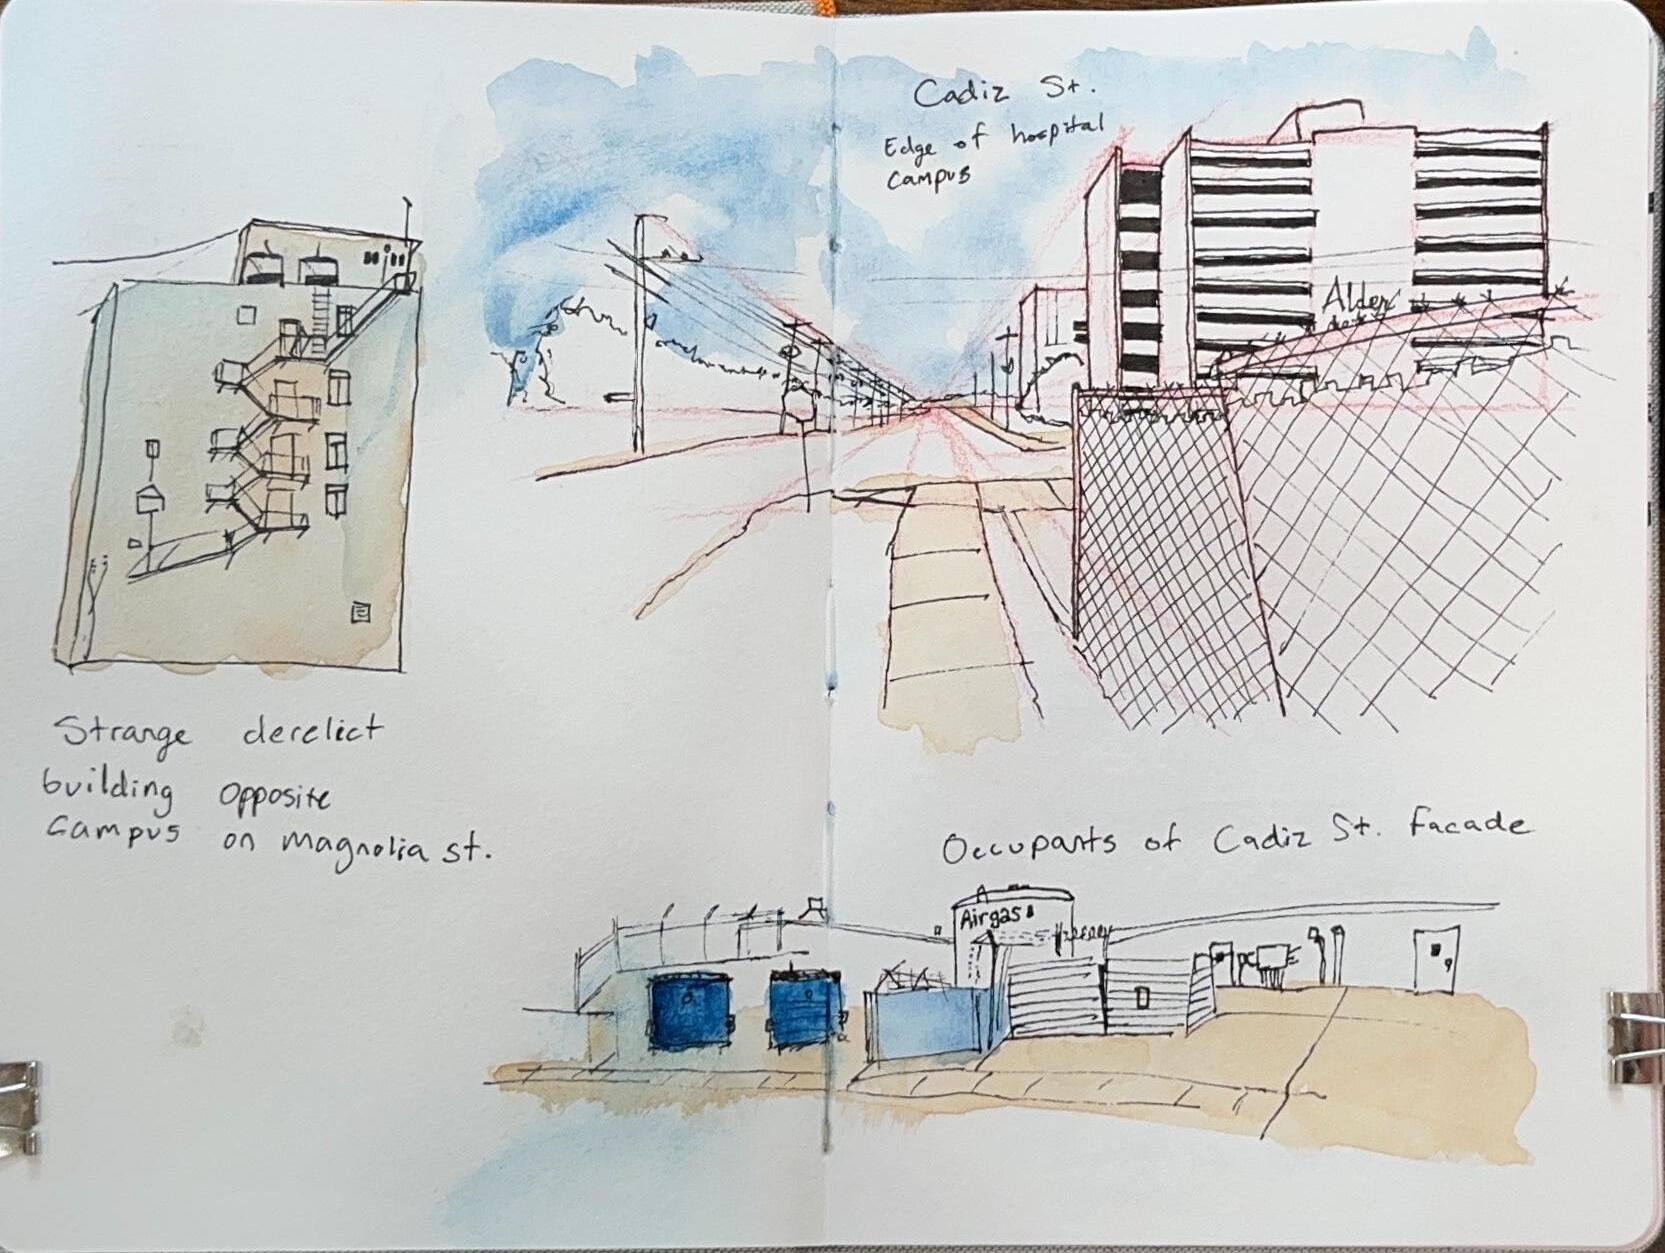 Cadiz St.
Edge of hospital
Campus
Alder
Strange derelict
building opposite
Campus on Magnolia St.
Occupants of Cadiz St. facade
Airgas